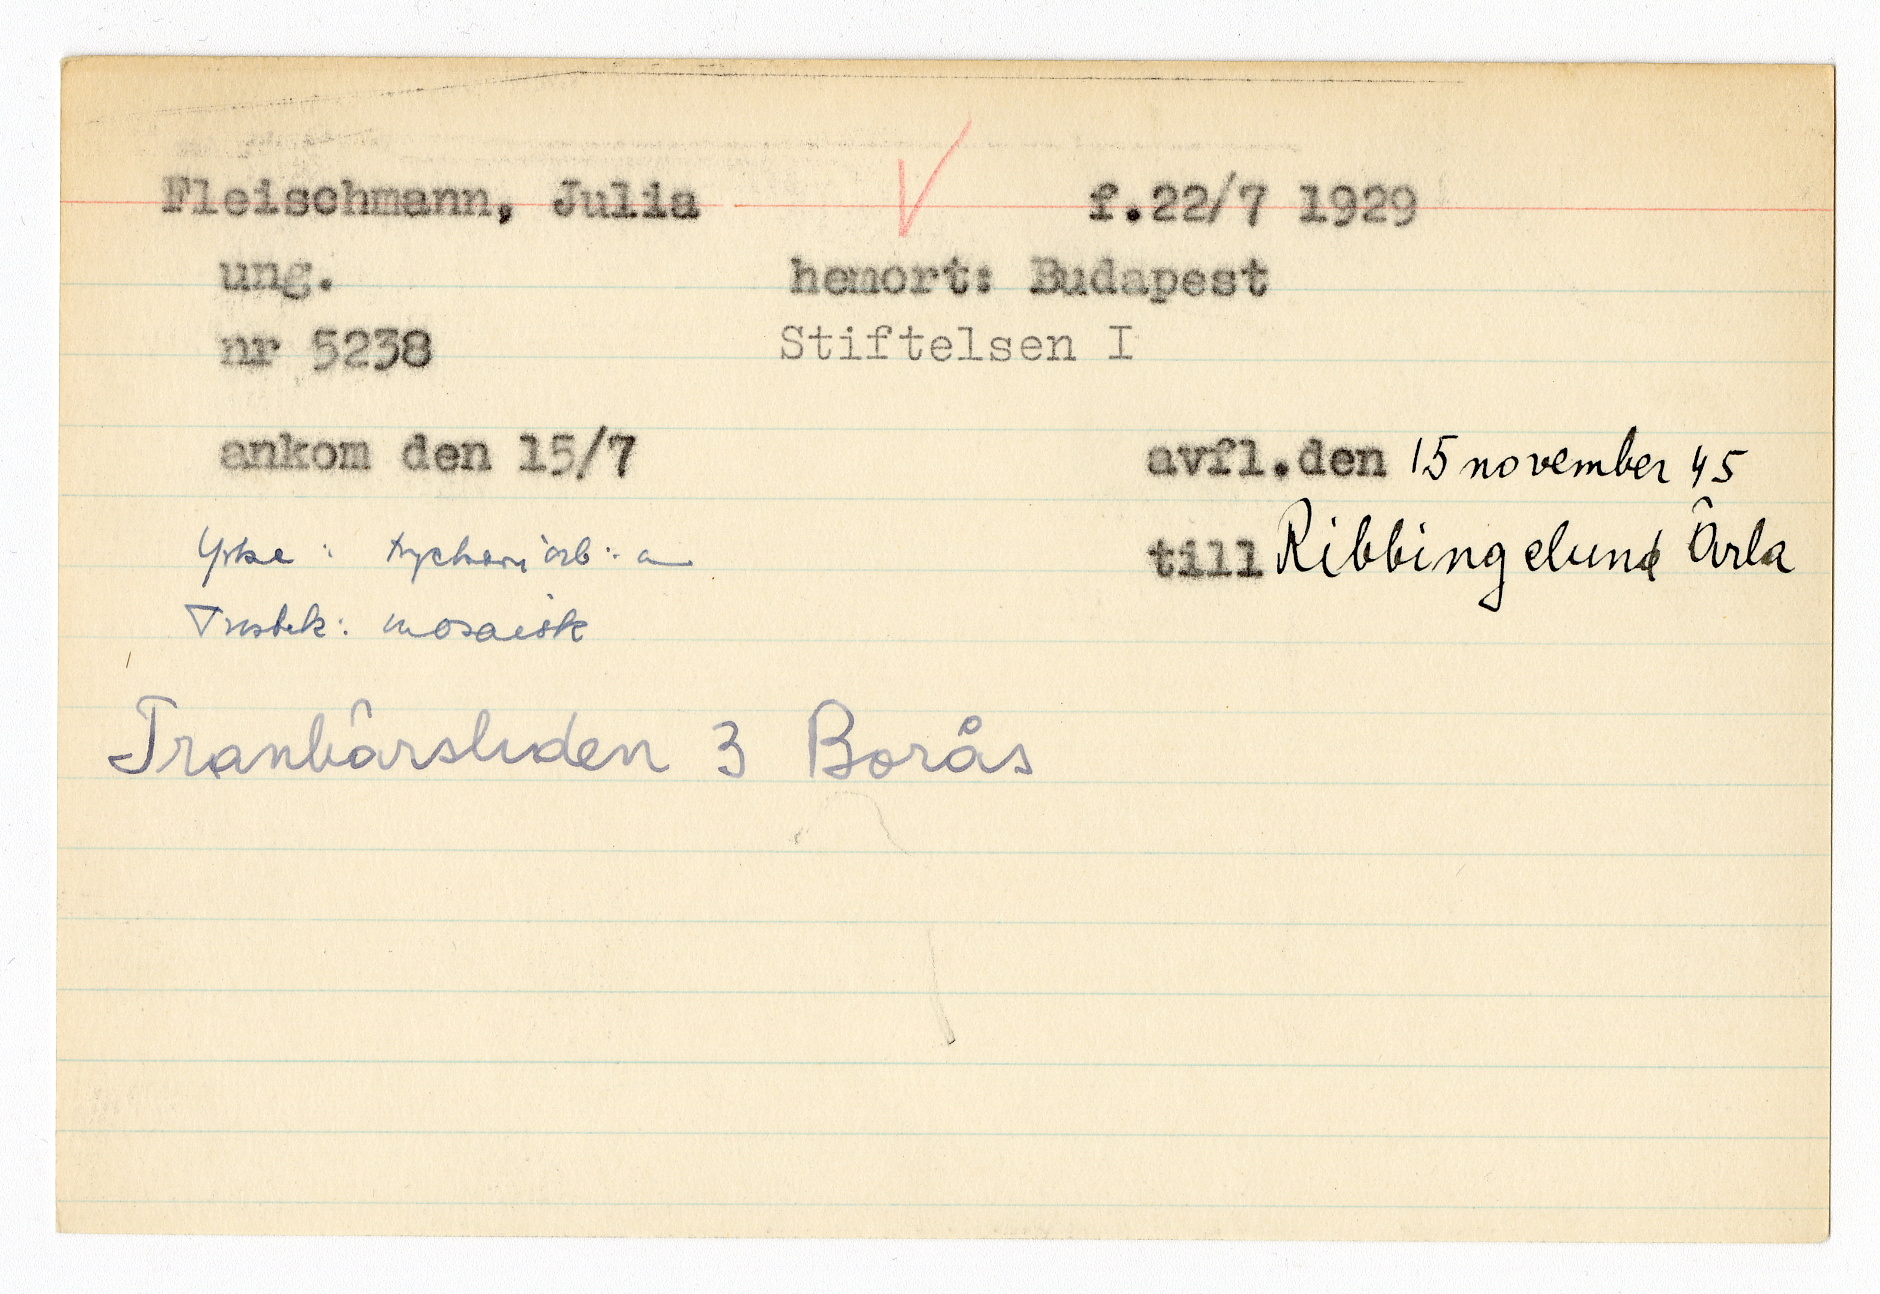 Fleischmann, Julia f.22/7 1929
ung. hemort: Budapest
nr 5238 Stiftelsen I
ankom den 15/7 avfl.den 15 november 45
till Ribbingelund Ärla
Yrke: tryckeriarb:a
Trosbek: mosaisk
Tranbärsliden 3 Borås